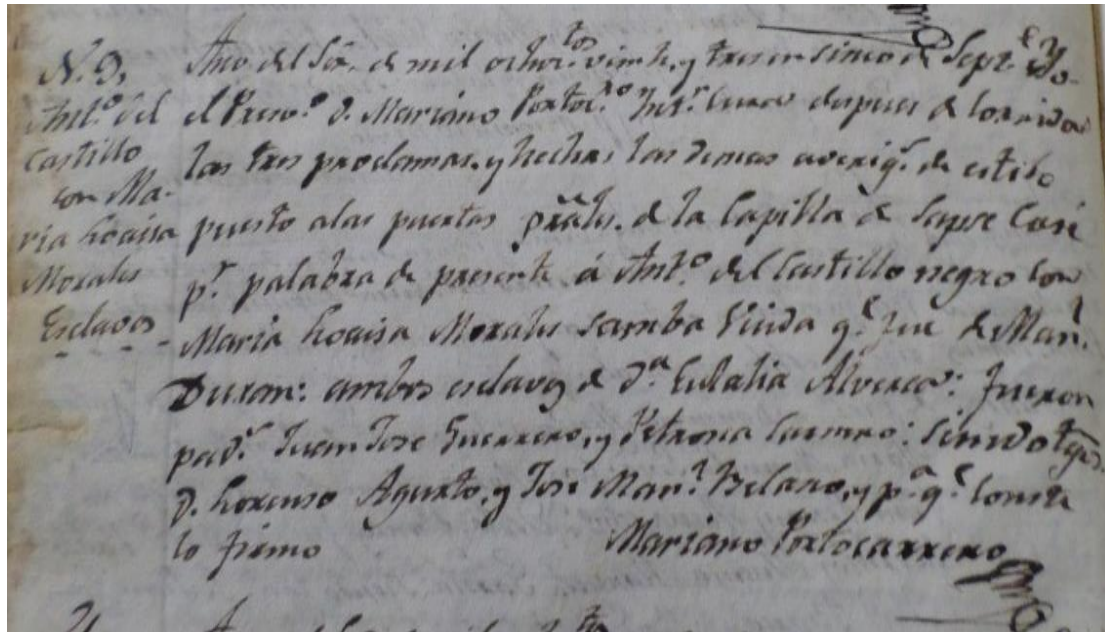 N. 9.
Ant.o del
Castillo
con Ma-
ria Loaisa
Morales
Esclavos
Ano del Sõr. de mil ochoc.tos vinte, y tres en sinco de Sept.e Yo
el Presv.o D. Mariano Portoc.o Int.o Cura despues de corridas
las tres proclamas, y hechas las demas averig.s de estilo
puesto a las puertas prãles. de la Capilla de Sapse Casé
p.r palabra de presente á Ant.o del Castillo negro con
Maria Loaisa Morales samba Viuda q.e fue de Man.l
Duran: ambos esclavos de D.a Eulalia Alvares: fueron
pad.s Juan Jose Guerrero, y Petrona : siendo tgos.
D. Lorenso Agurto, y Jose Man.l Belano, y p.a q.e conste
lo firmo
Mariano Portocarrero